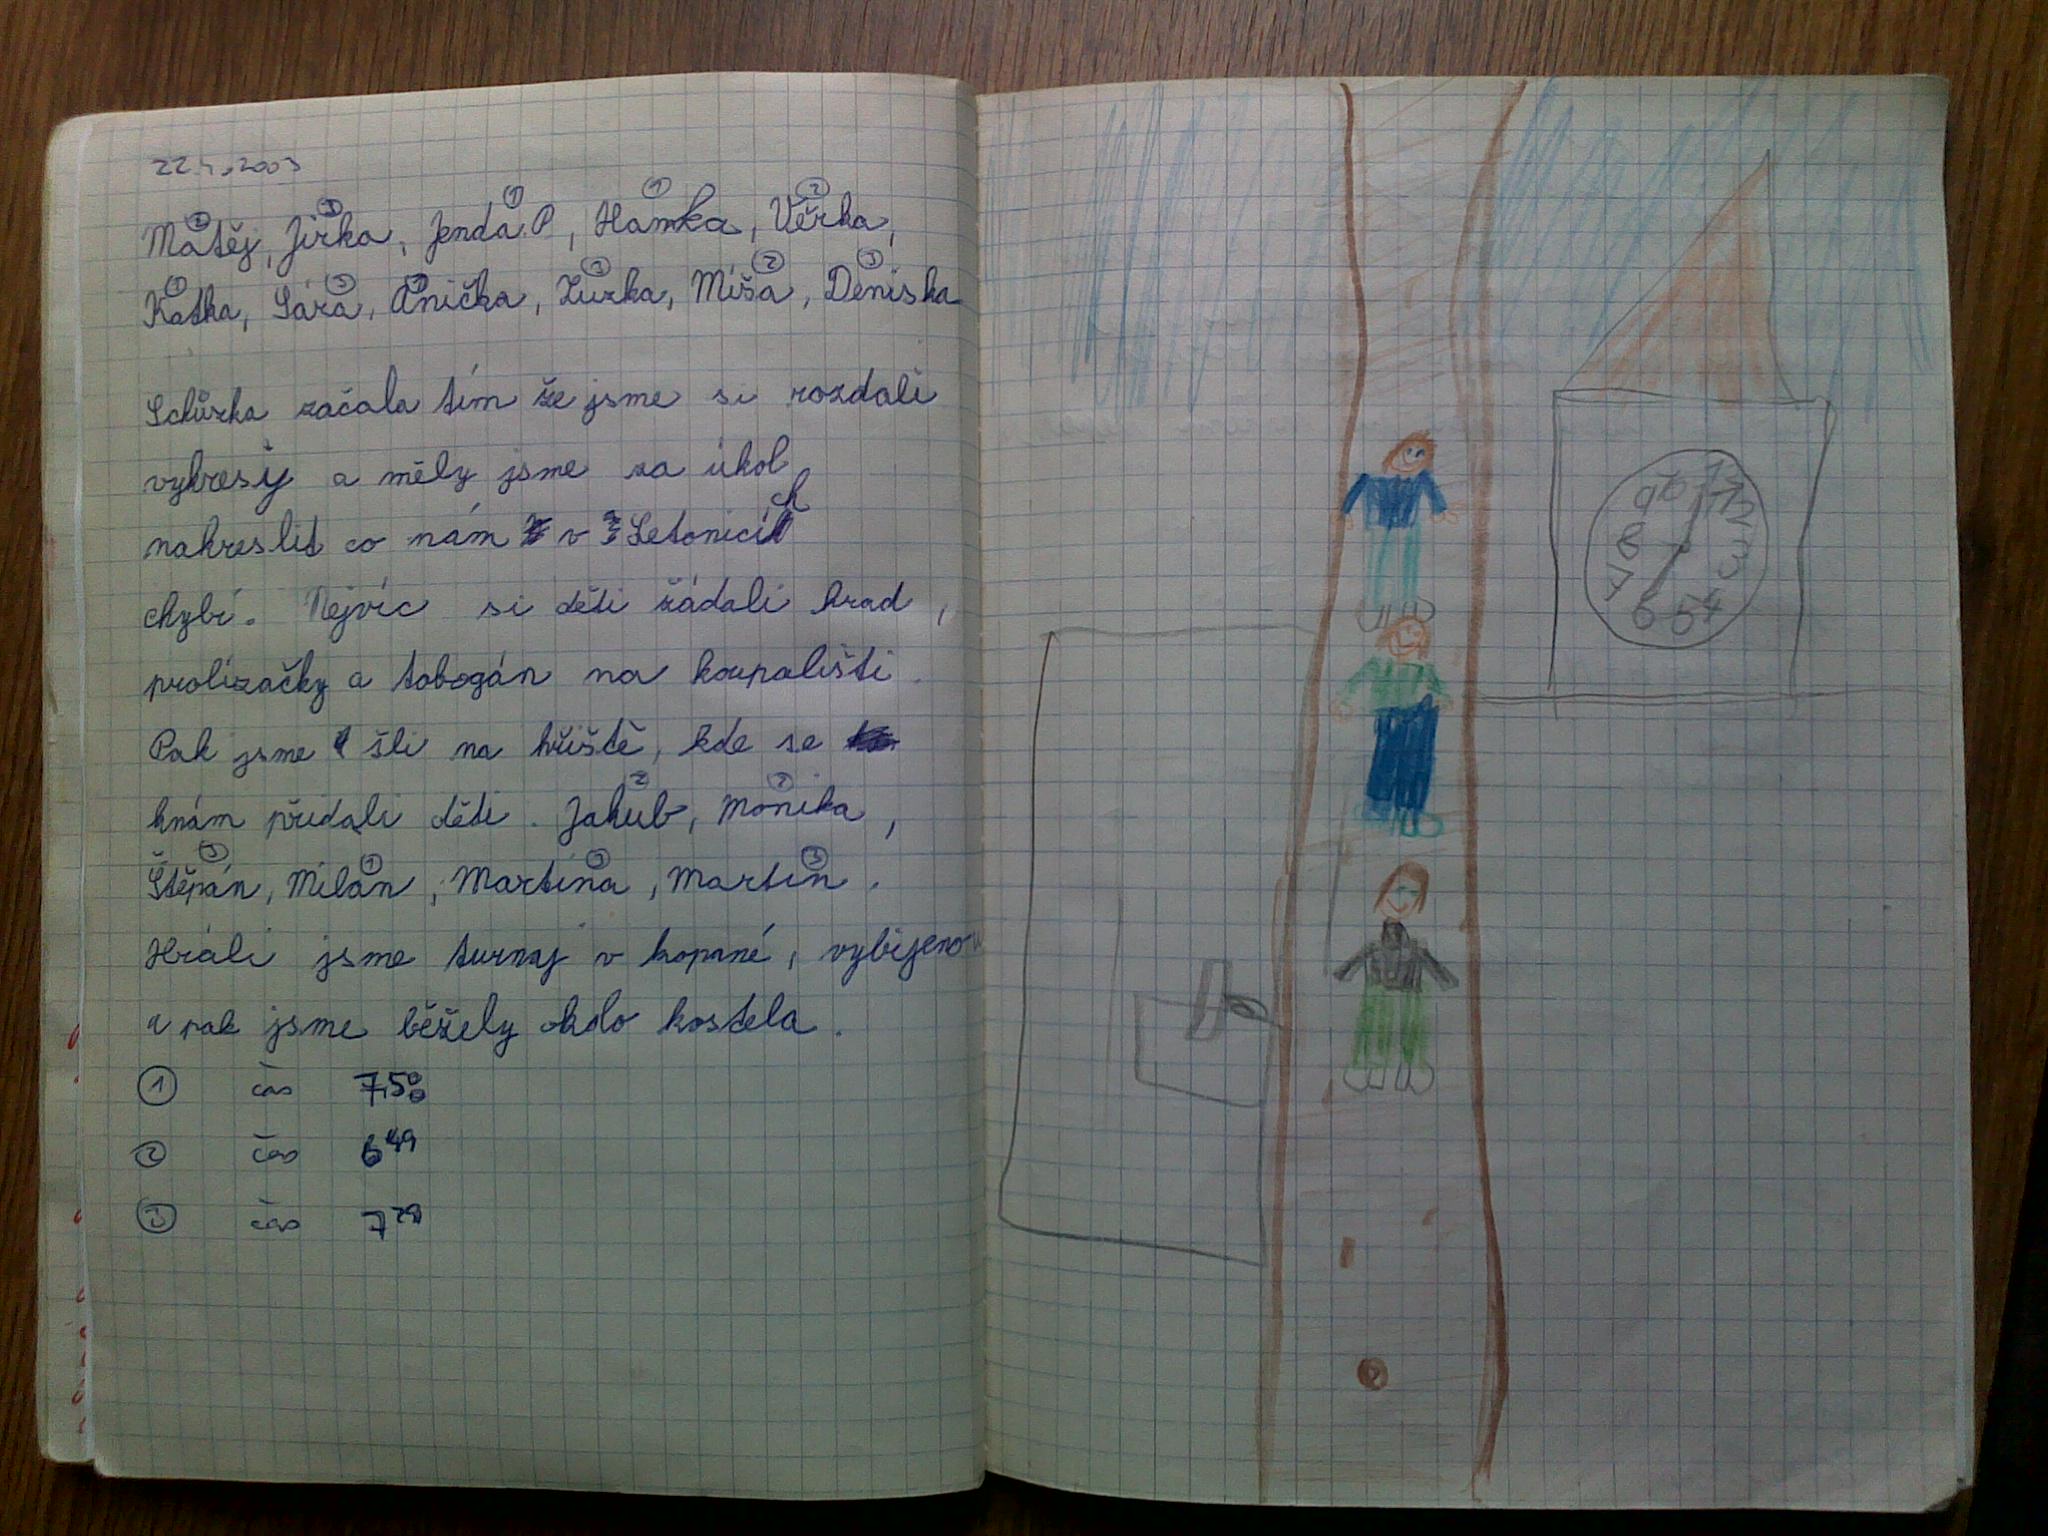 22.4.2003
Matěj, Jirka, Jenda P, Hanka, Věrka,
Katka, Sára, Anička, Zuzka, Míša, Deniska
Schůzka začala tím že jsme si rozdali
vykresy a měly jsme za úkol
nakreslit co nám v Letonicích
chybí. Nejvíc si děti žádali hrad,
prolízačky a tobogán na koupališti.
Pak jsme šli na hřiště, kde se
knám přidali děti. Jakub, Monika,
Štěpán, Milan, Martina, Martin.
Hráli jsme turnaj v kopané, vybijenou
a pak jsme běžely okolo kostela.
① čas 7,50
② čas 6 49
③ čas 7 29